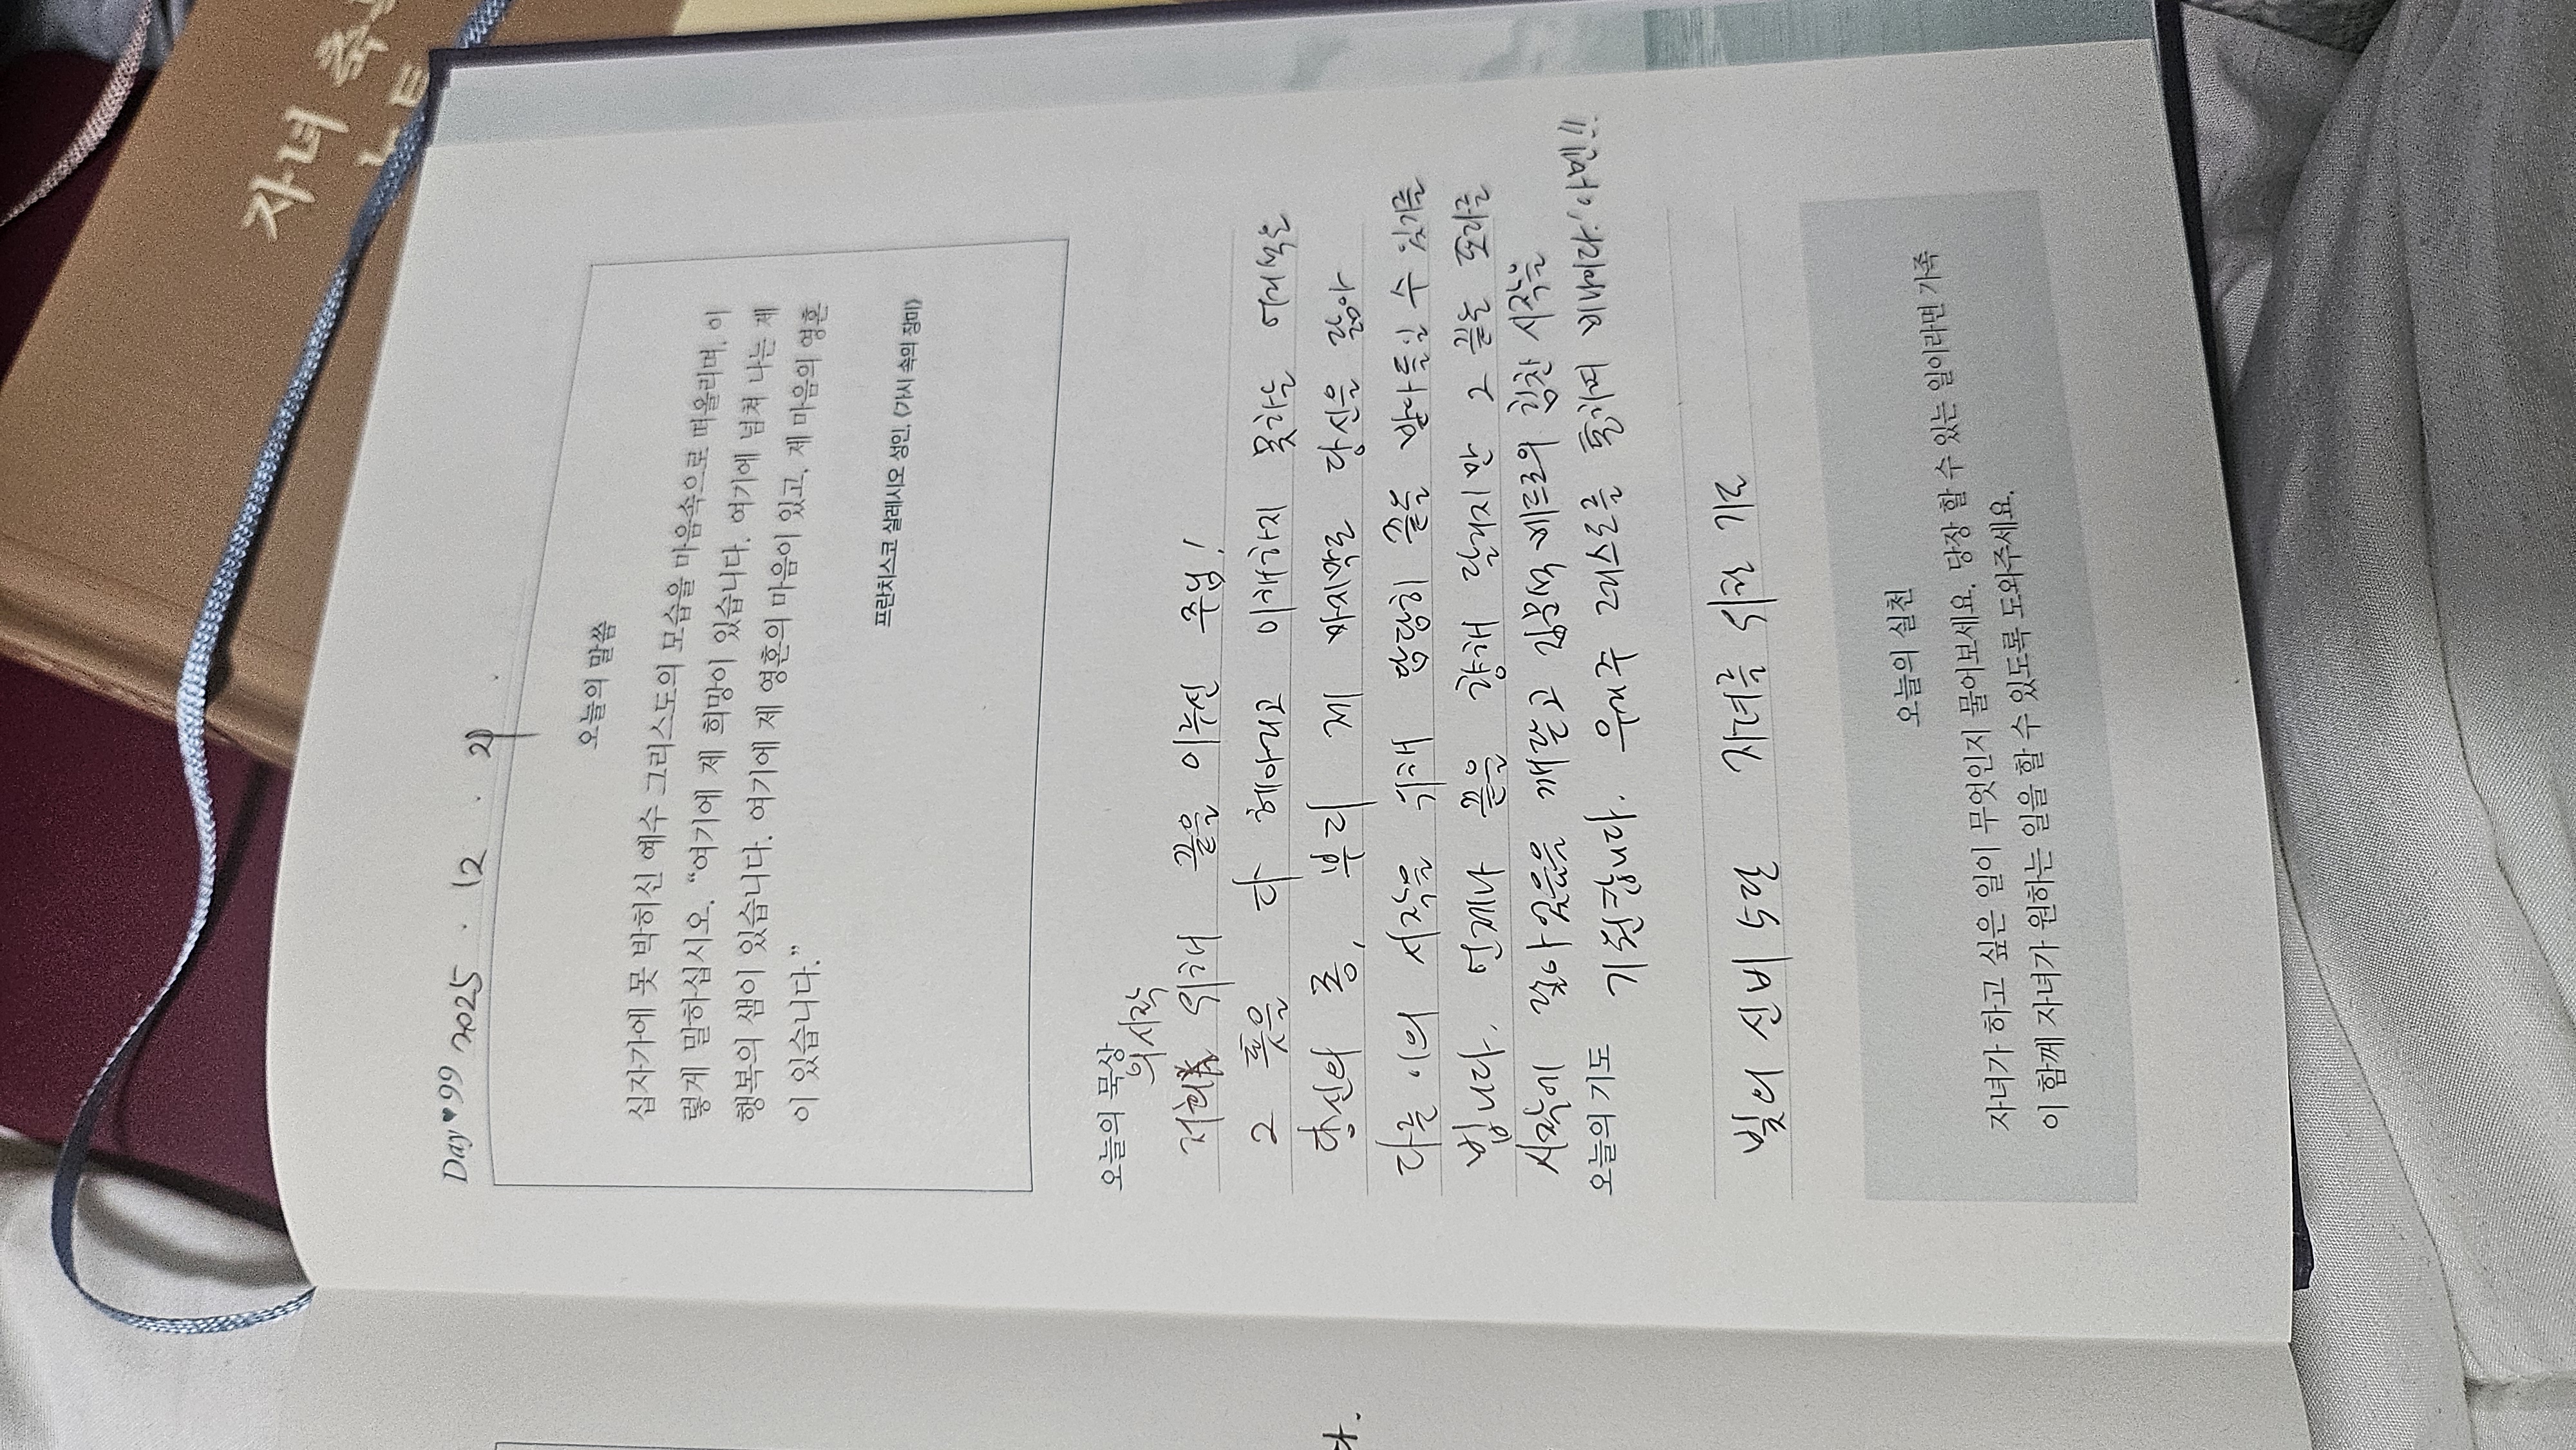 자녀 축
노트
Day♥99 2025 . 12 . 21 .
오늘의 말씀
십자가에 못 박히신 예수 그리스도의 모습을 마음속으로 떠올리며, 이
렇게 말하십시오. “여기에 제 희망이 있습니다. 여기에 넘쳐 나는 제
행복의 샘이 있습니다. 여기에 제 영혼의 마음이 있고, 제 마음의 영혼
이 있습니다.”
프란치스코 살레시오 성인, 《가시 속의 장미》
오늘의 묵상
의 시작
저희 위해 끝을 이루신 주님!
그 뜻을 다 헤아리고 이해하지 못하는 어리석은
당신의 종, 부디 제 마지막도 당신을 닮아
다른 이의 시작을 위해 담담히 끝을 받아들일 수 있기를
빕니다. 언제나 끝을 향해 달리지만 그 끝은 또다른
시작에 닿아 있음을 깨닫고 김문덕 베드로의 힘찬 시작을
오늘의 기도 기원합니다. 우리 주 그리스도를 통하여 비나이다. 아멘!!
빛의 신비 5단 자녀를 위한 기도
오늘의 실천
자녀가 하고 싶은 일이 무엇인지 물어보세요. 당장 할 수 있는 일이라면 가족
이 함께 자녀가 원하는 일을 할 수 있도록 도와주세요.
다.